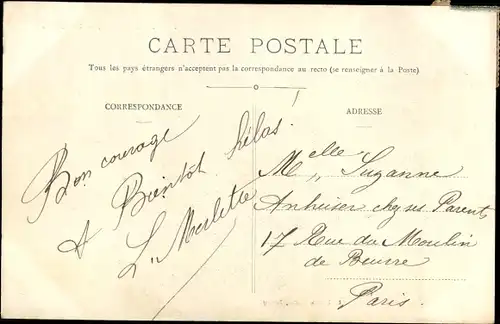 CARTE POSTALE
Tous les pays étrangers n'acceptent pas la correspondance au recto (se renseigner à la Poste)
CORRESPONDANCE
Bon courage
A Bientôt hélas!
L. Merlette
ADRESSE
Melle Suzanne
Anheiser chez ses Parents
17 Rue du Moulin
de Beurre
Paris.